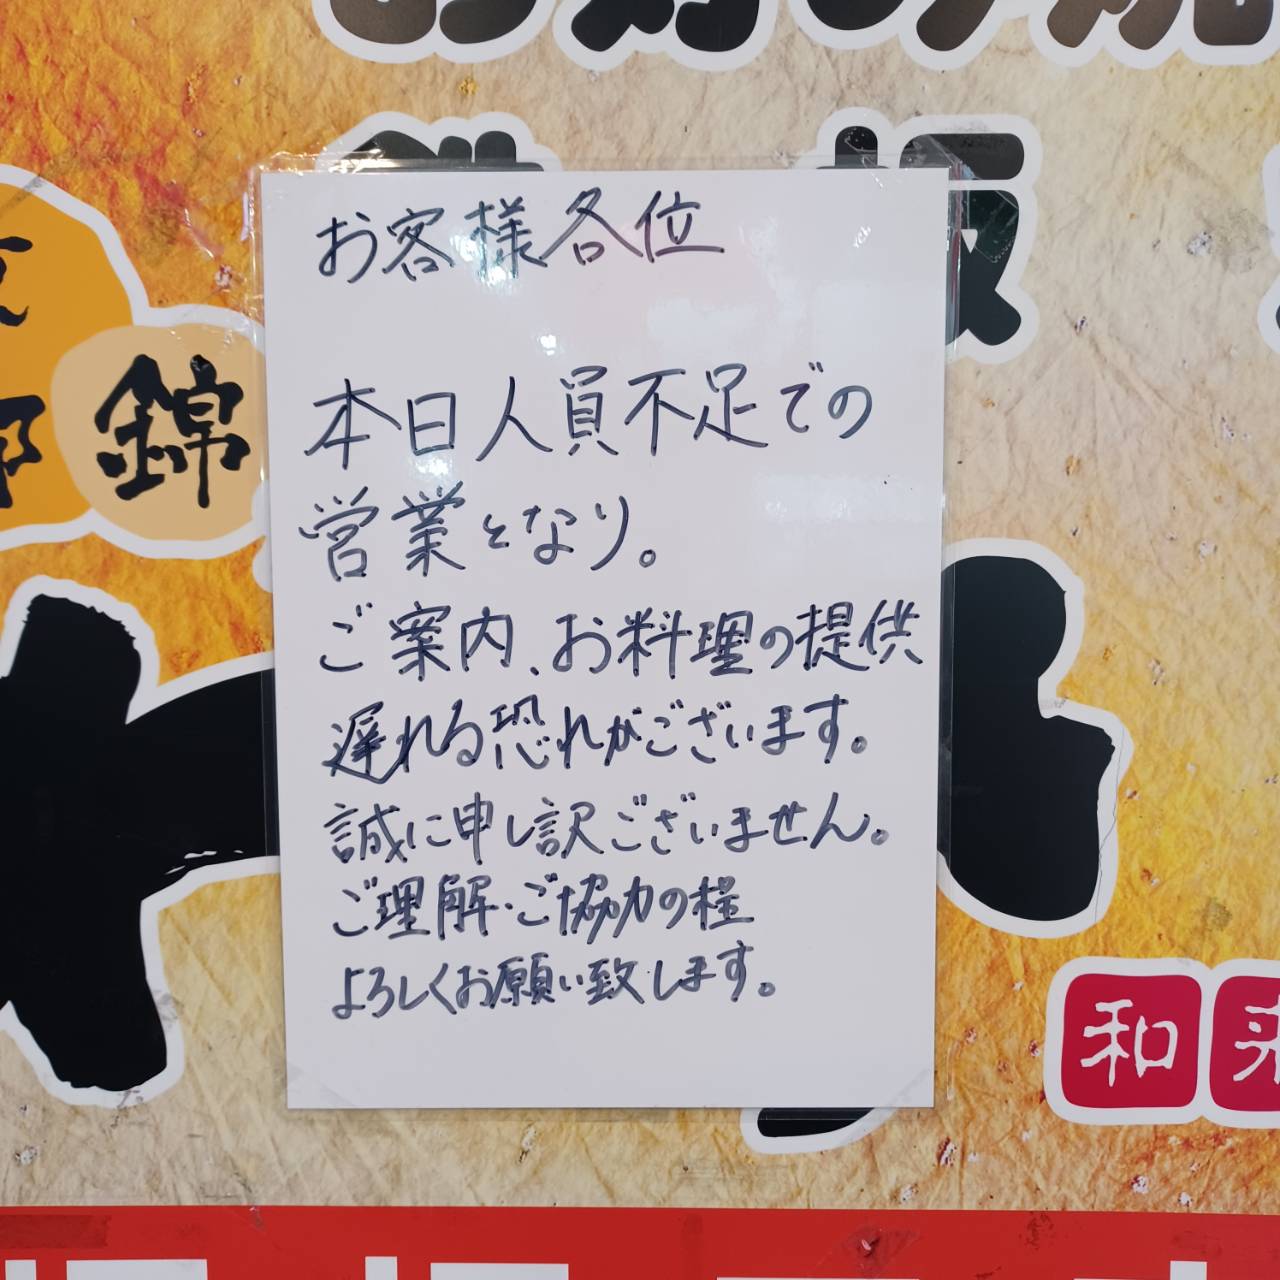 お好み焼
鉄板
錦
お客様各位
本日人員不足での
営業となり。
ご案内、お料理の提供
遅れる恐れがございます。
誠に申し訳ございません。
ご理解・ご協力の程
よろしくお願い致します。
和